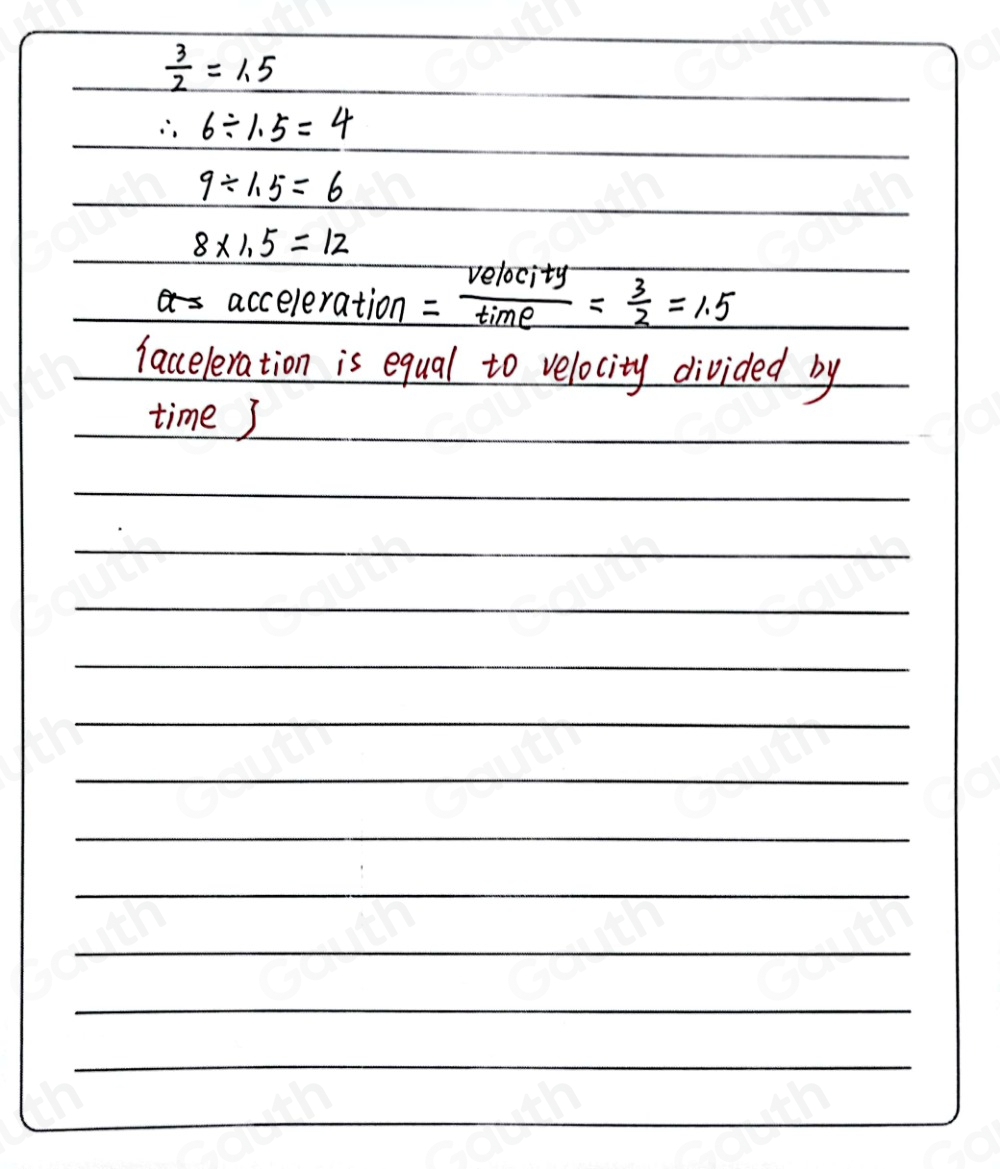 3/2 = 1.5
∴ 6÷1.5 = 4
9÷1.5 = 6
8×1.5 = 12
acceleration = velocity/time = 3/2 = 1.5
{acceleration is equal to velocity divided by
time}